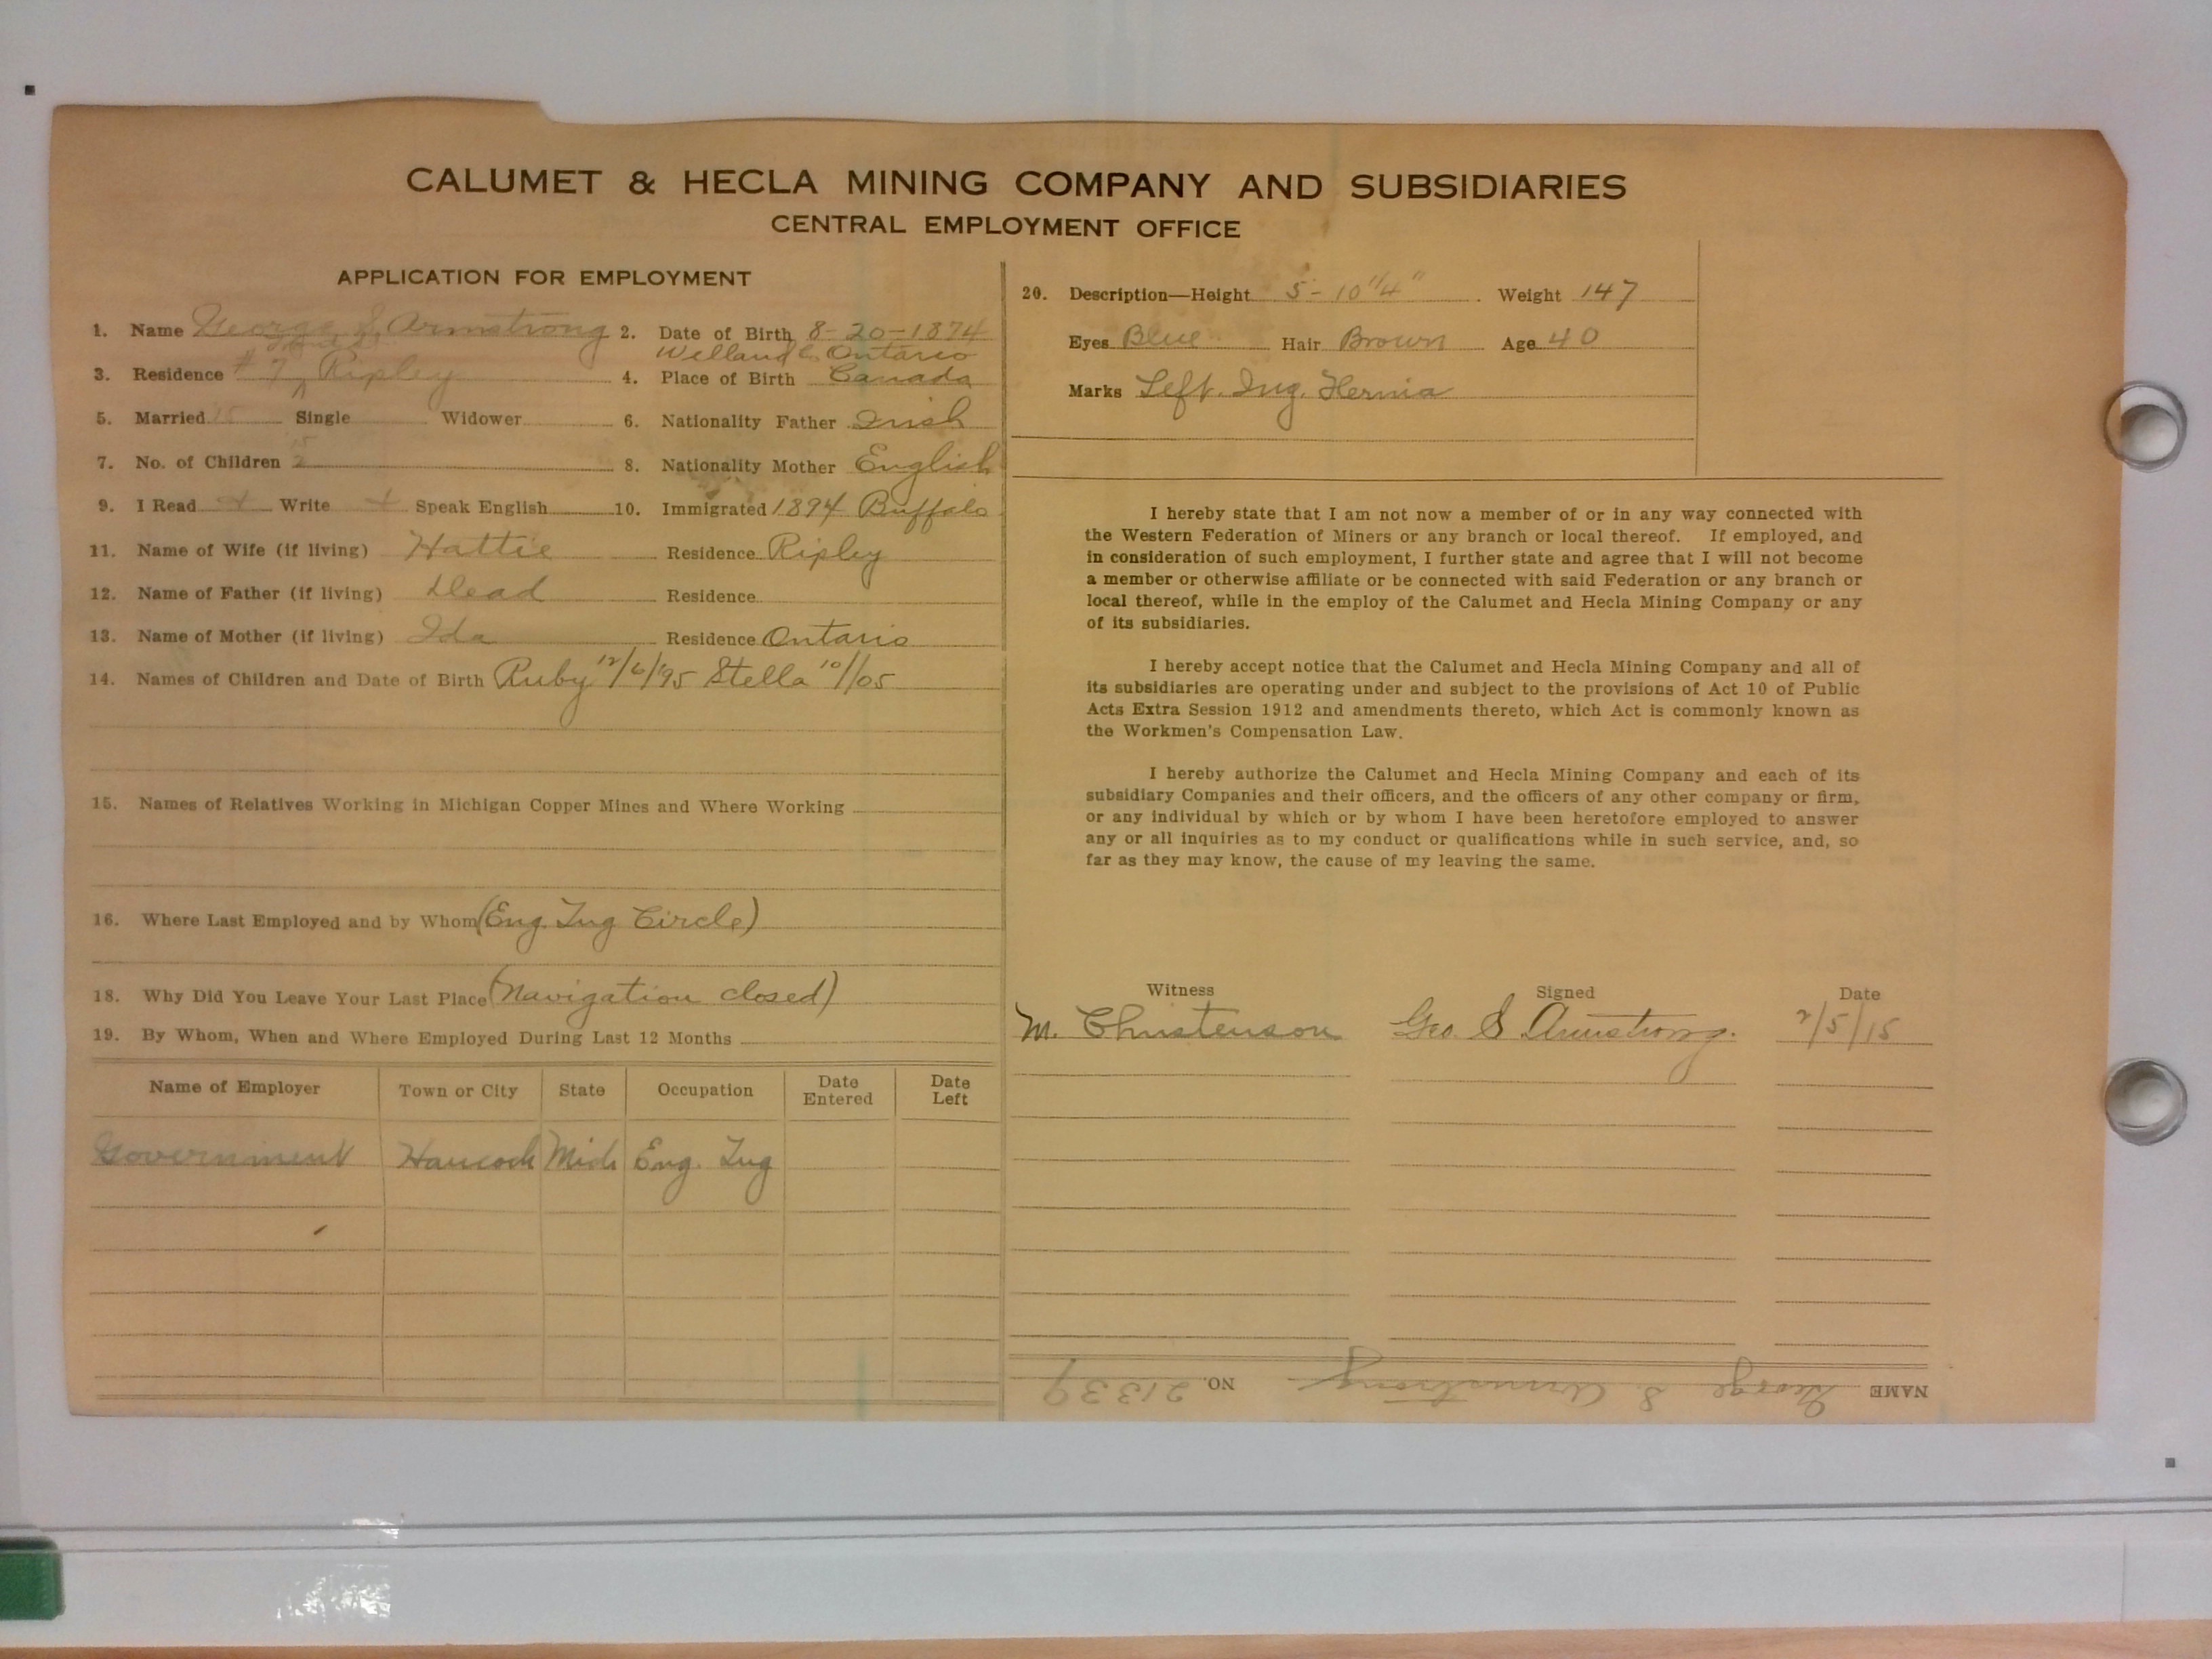 CALUMET & HECLA MINING COMPANY AND SUBSIDIARIES
CENTRAL EMPLOYMENT OFFICE
APPLICATION FOR EMPLOYMENT
1. Name George S. Armstrong 2. Date of Birth 8-20-1874
Welland C. Ontario
3. Residence #7, Ripley 4. Place of Birth Canada
5. Married 15 Single Widower 6. Nationality Father Irish
7. No. of Children 2 8. Nationality Mother English
9. I Read + Write + Speak English 10. Immigrated 1894 Buffalo
11. Name of Wife (if living) Hattie Residence Ripley
12. Name of Father (if living) Dead Residence
13. Name of Mother (if living) Ida Residence Ontario
14. Names of Children and Date of Birth Ruby 12/6/95 Stella 10/1/05
15. Names of Relatives Working in Michigan Copper Mines and Where Working
16. Where Last Employed and by Whom (Eng. Tug Circle)
18. Why Did You Leave Your Last Place (Navigation closed)
19. By Whom, When and Where Employed During Last 12 Months
Name of Employer Town or City State Occupation Date Entered Date Left
Government Hancock Mich Eng. Tug
20. Description—Height 5-10 1/4" Weight 147
Eyes Blue Hair Brown Age 40
Marks Left. Ing. Hernia
I hereby state that I am not now a member of or in any way connected with
the Western Federation of Miners or any branch or local thereof. If employed, and
in consideration of such employment, I further state and agree that I will not become
a member or otherwise affiliate or be connected with said Federation or any branch or
local thereof, while in the employ of the Calumet and Hecla Mining Company or any
of its subsidiaries.
I hereby accept notice that the Calumet and Hecla Mining Company and all of
its subsidiaries are operating under and subject to the provisions of Act 10 of Public
Acts Extra Session 1912 and amendments thereto, which Act is commonly known as
the Workmen's Compensation Law.
I hereby authorize the Calumet and Hecla Mining Company and each of its
subsidiary Companies and their officers, and the officers of any other company or firm,
or any individual by which or by whom I have been heretofore employed to answer
any or all inquiries as to my conduct or qualifications while in such service, and, so
far as they may know, the cause of my leaving the same.
Witness Signed Date
M. Christenson Geo. S Armstrong. 2/5/15
NAME George S. Armstrong NO. 21339